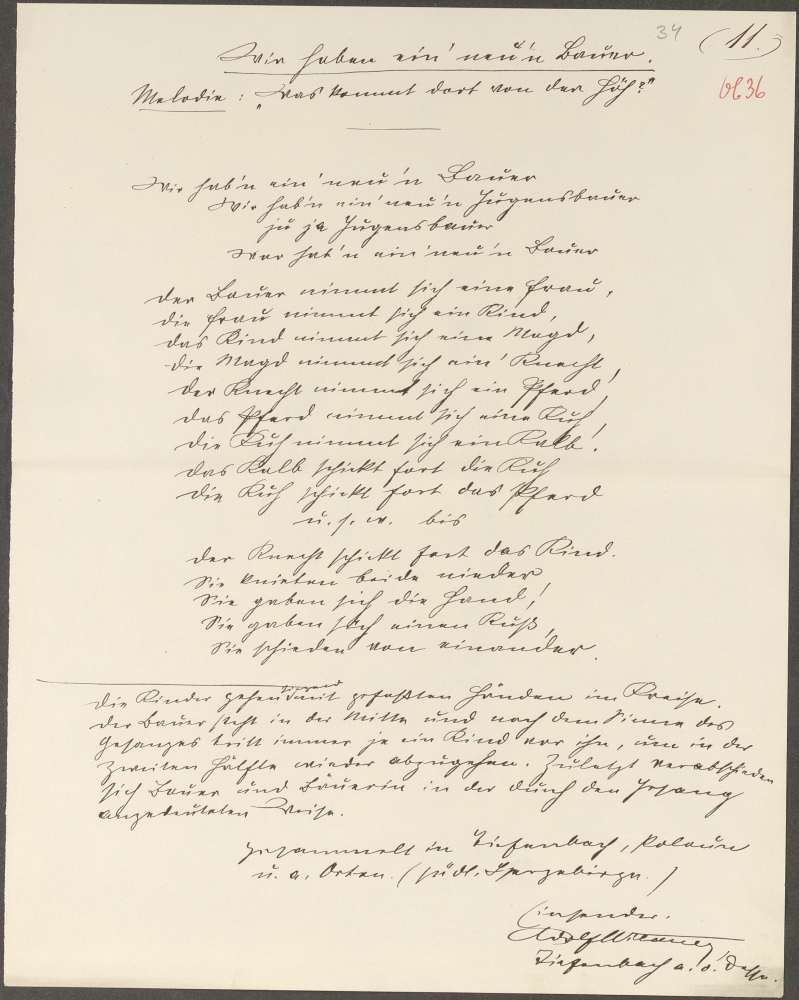 34
(11.)
Wir haben ein' neu'n Bauer.
Melodie: „Was kommt dort von der Höh?"
Wir hab'n ein' neu'n Bauer
Wir hab'n ein' neu'n Jugensbauer
ju ja Jugensbauer
War hab'n ein' neu'n Bauer
Der Bauer nimmt sich eine Frau,
die Frau nimmt sich ein Kind,
das Kind nimmt sich eine Magd,
die Magd nimmt sich ein' Knecht,
der Knecht nimmt sich ein Pferd,
das Pferd nimmt sich eine Kuh,
die Kuh nimmt sich ein Kalb!
das Kalb schickt fort die Kuh
die Kuh schickt fort das Pferd
u. s. w. bis
der Knecht schickt fort das Kind.
Sie knieten beide nieder,
Sie gaben sich die Hand,
Sie gaben sich einen Kuß,
Sie schieden von einander.
Die Kinder gehen singend mit gefaßten Händen im Kreise.
Der Bauer steht in der Mitte und nach dem Sinne des
Gesanges tritt immer je ein Kind vor ihn, um in der
zweiten Hälfte wieder abzugehen. Zuletzt verabschieden
sich Bauer und Bäuerin in der durch den Gesang
angedeuteten Weise.
Gesammelt in Tiefenbach, Polaun
u. a. Orten. (südl. Isergebirge.)
Einsender.
Adolf
Tiefenbach a. d. Desse.